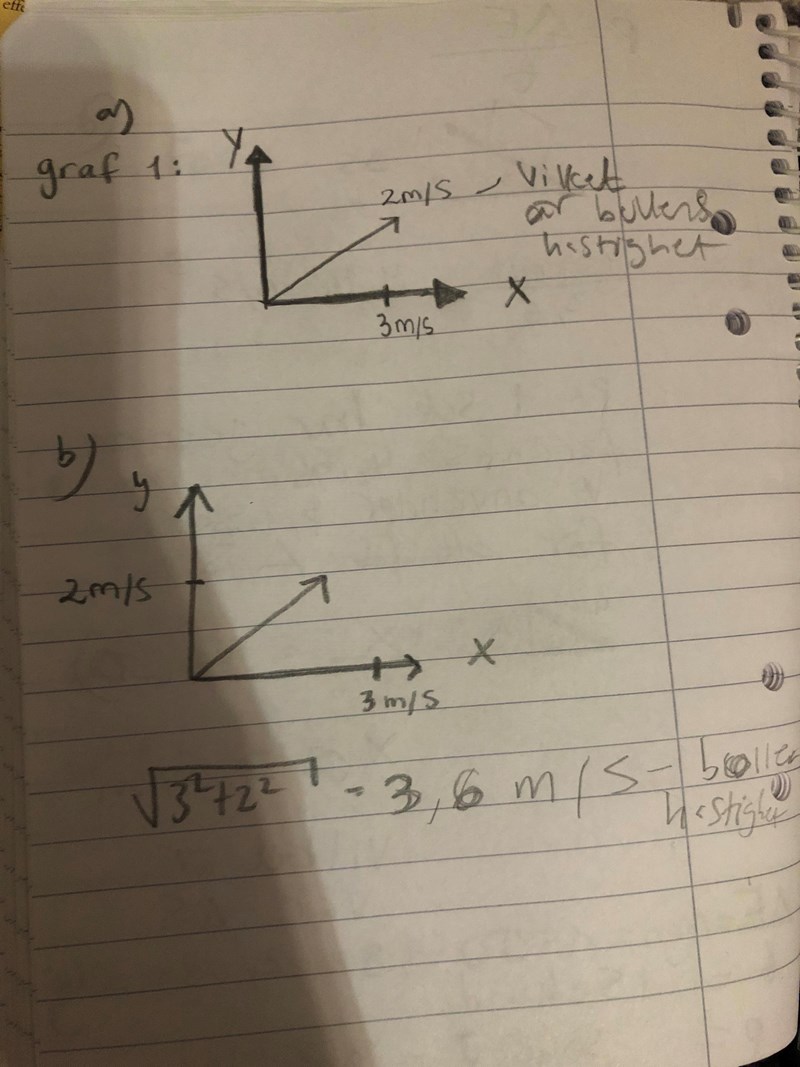 effe
a)
graf 1:
y
2m/s - vilket
är bollens
hastighet
x
3m/s
b)
y
2m/s
x
3m/s
√3²+2² = 3,6 m/s - bollen
hastighe